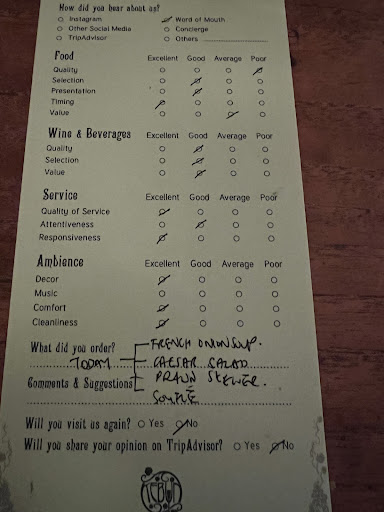 How did you hear about us?
Instagram Word of Mouth
Other Social Media Concierge
TripAdvisor Others
Food Excellent Good Average Poor
Quality
Selection
Presentation
Timing
Value
Wine & Beverages Excellent Good Average Poor
Quality
Selection
Value
Service Excellent Good Average Poor
Quality of Service
Attentiveness
Responsiveness
Ambience Excellent Good Average Poor
Decor
Music
Comfort
Cleanliness
What did you order? FRENCH ONION SUP.
TODAY CAESAR SALAD
Comments & Suggestions PRAWN SKEWER.
SOUFLÉ
Will you visit us again? Yes No
Will you share your opinion on TripAdvisor? Yes No